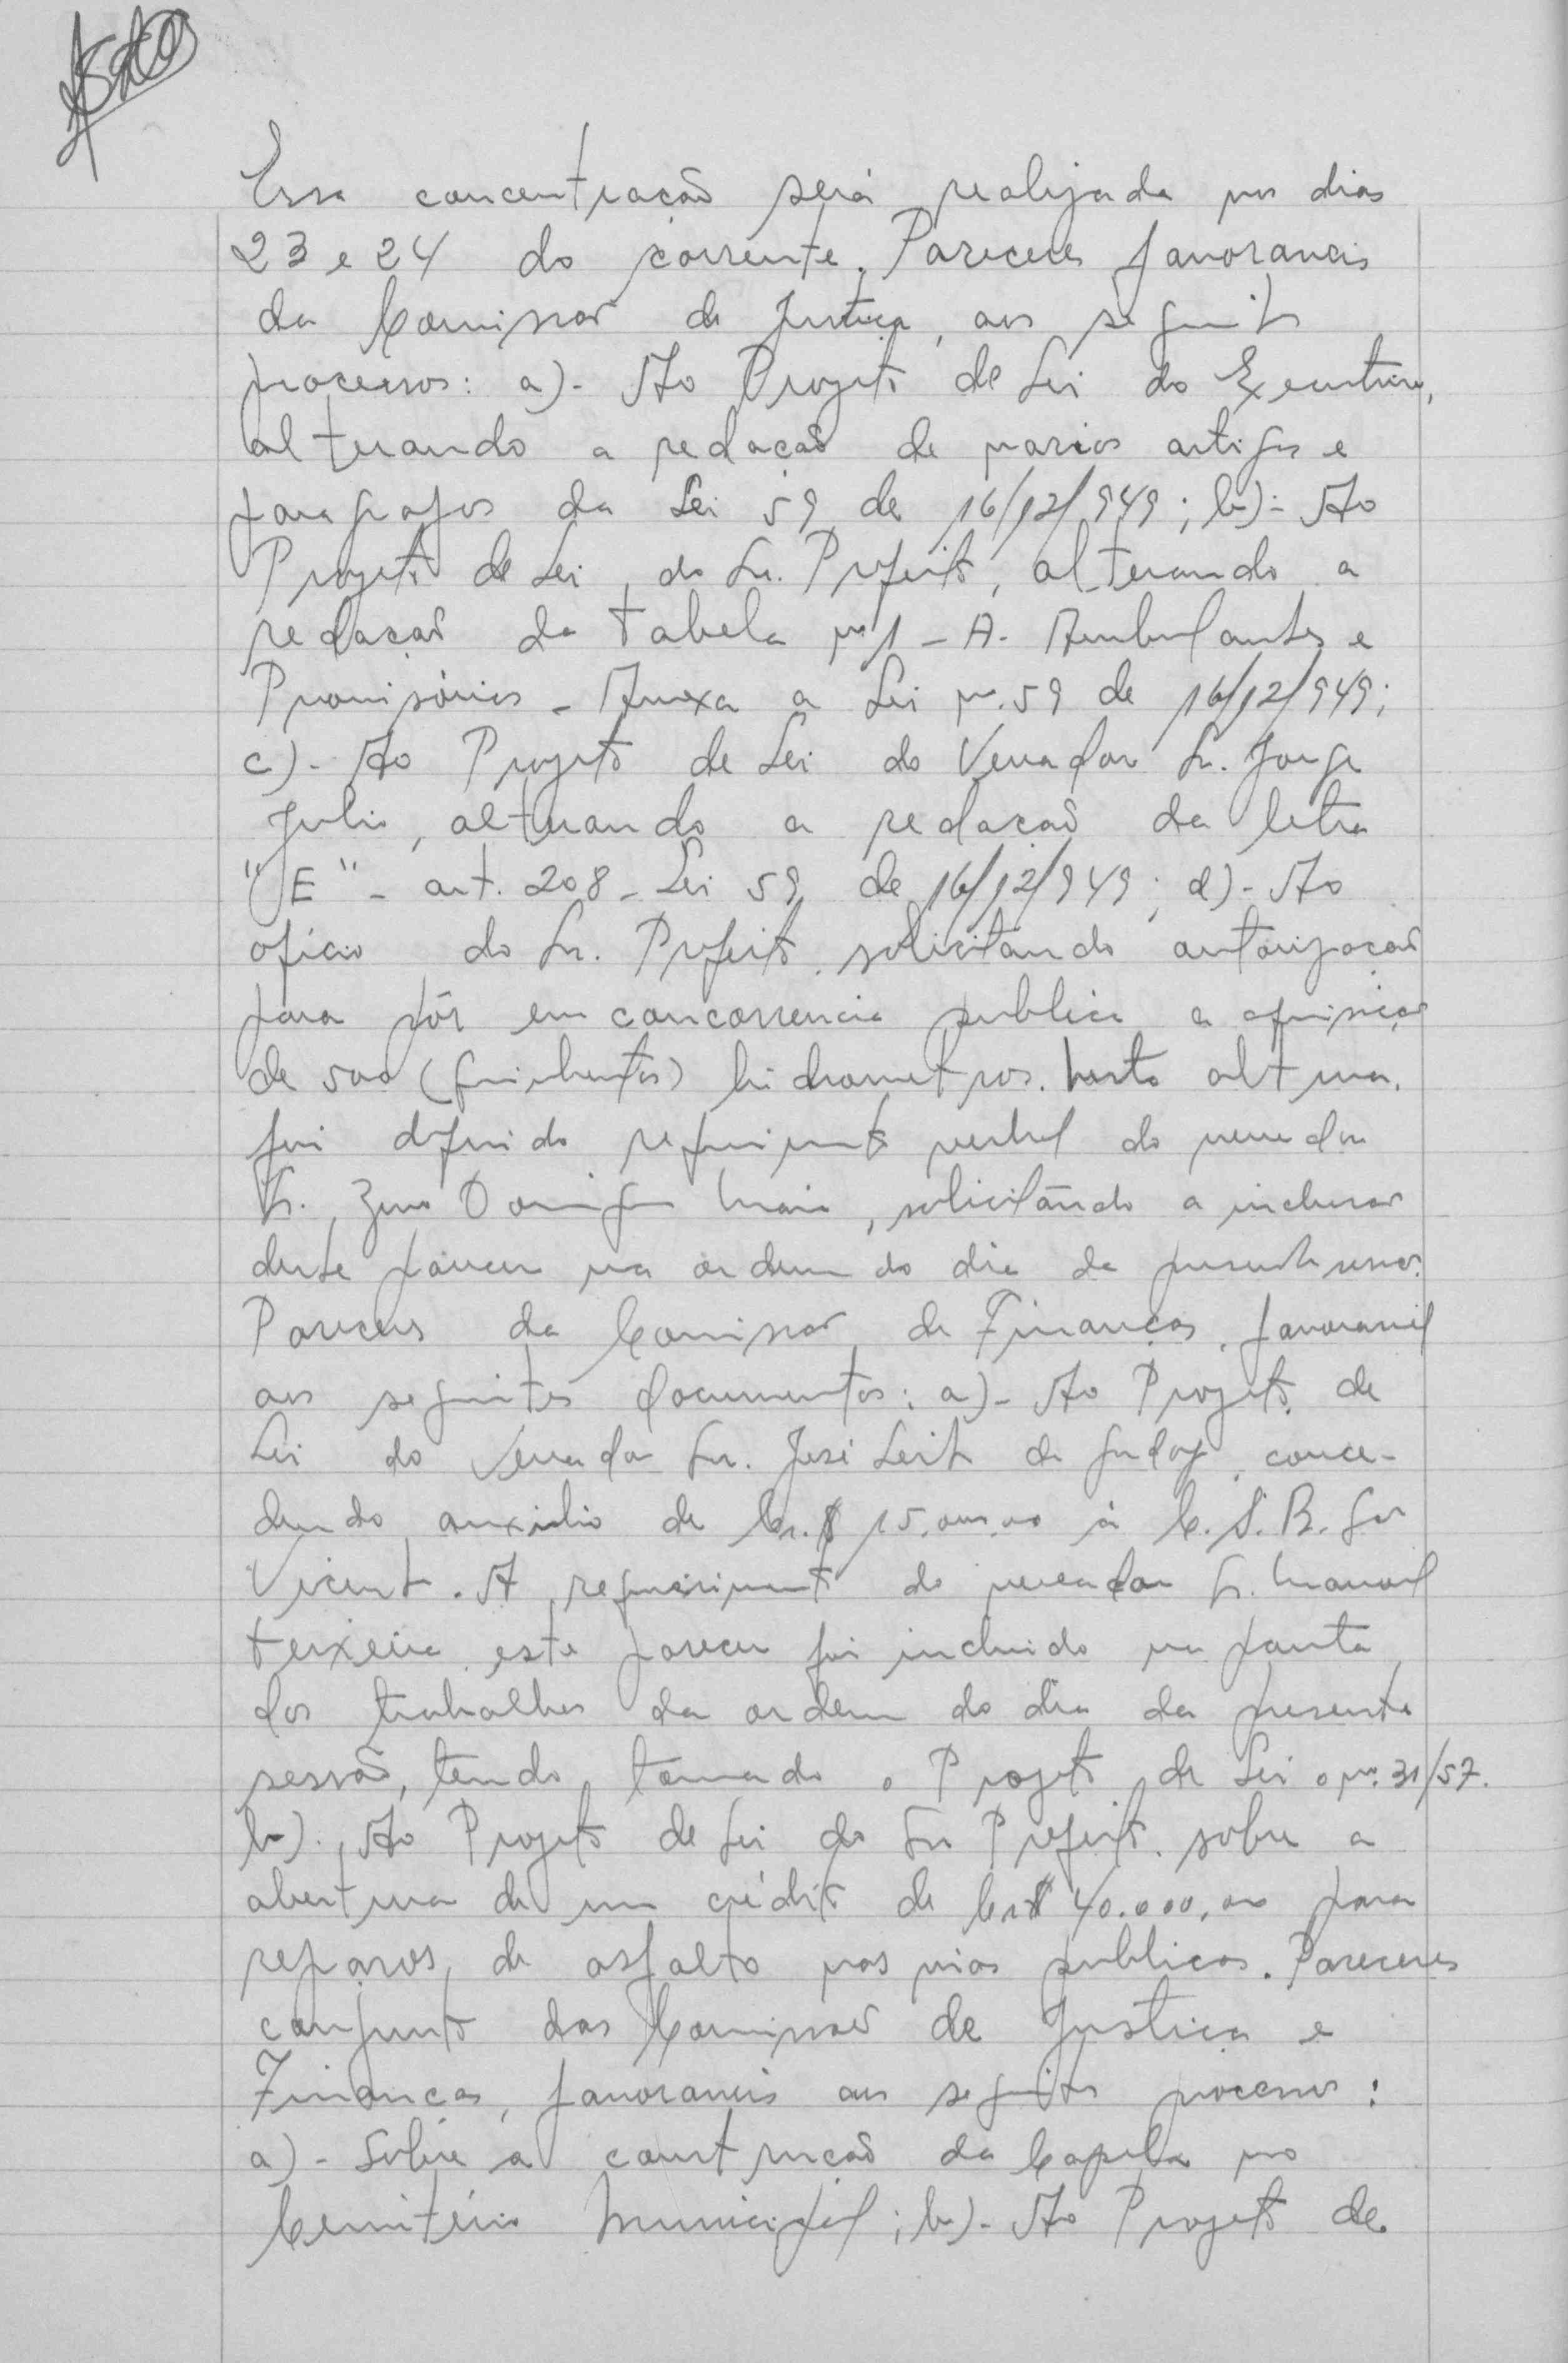 Essa concentração será realizada nos dias
23 e 24 do corrente. Pareceres favoraveis
da Comissão de Justiça, aos seguintes
processos: a)- Ao Projeto de Lei do Executivo,
alterando a redação de varios artigos e
paragrafos da Lei 59 de 16/12/949; b)- Ao
Projeto de Lei, do Sr. Prefeito, alterando a
redação da tabela nº 1 - A. Ambulantes e
Provisórios - Anexa a Lei nº 59 de 16/12/949;
c)- Ao Projeto de Lei do Vereador Sr. Jorge
Julio, alterando a redação da letra
"E" - art. 208 - Lei 59 de 16/12/949; d)- Ao
oficio do Sr. Prefeito, solicitando autorização
para pôr em concorrencia publica a aquisição
de 500 (quinhentos) hidrometros. Nesta altura,
foi deferido requerimento verbal do vereador
Sr. Domingos Maia, solicitando a inclusão
deste parecer na ordem do dia da presente sessão.
Pareceres da Comissão de Finanças, favoravel
aos seguintes documentos: a)- Ao Projeto de
Lei do Vereador Sr. José Leite de Godoy, conce-
dendo auxilio de Cr.$ 15.000,00 á C. S. B. São
Vicente. A requerimento do vereador Sr. Manoel
Teixeira este parecer foi incluido na pauta
dos trabalhos da ordem do dia da presente
sessão, tendo tomado o Projeto de Lei o nº 31/57.
b). Ao Projeto de Lei do Sr Prefeito. sobre a
abertura de um crédito de Cr$ 40.000,00 para
reparos de asfalto nas vias publicas. Pareceres
conjunto das Comissões de Justiça e
Finanças, favoraveis aos seguintes processos:
a)- Sobre a construção da Capela no
Cemitério Municipal; b)- Ao Projeto de